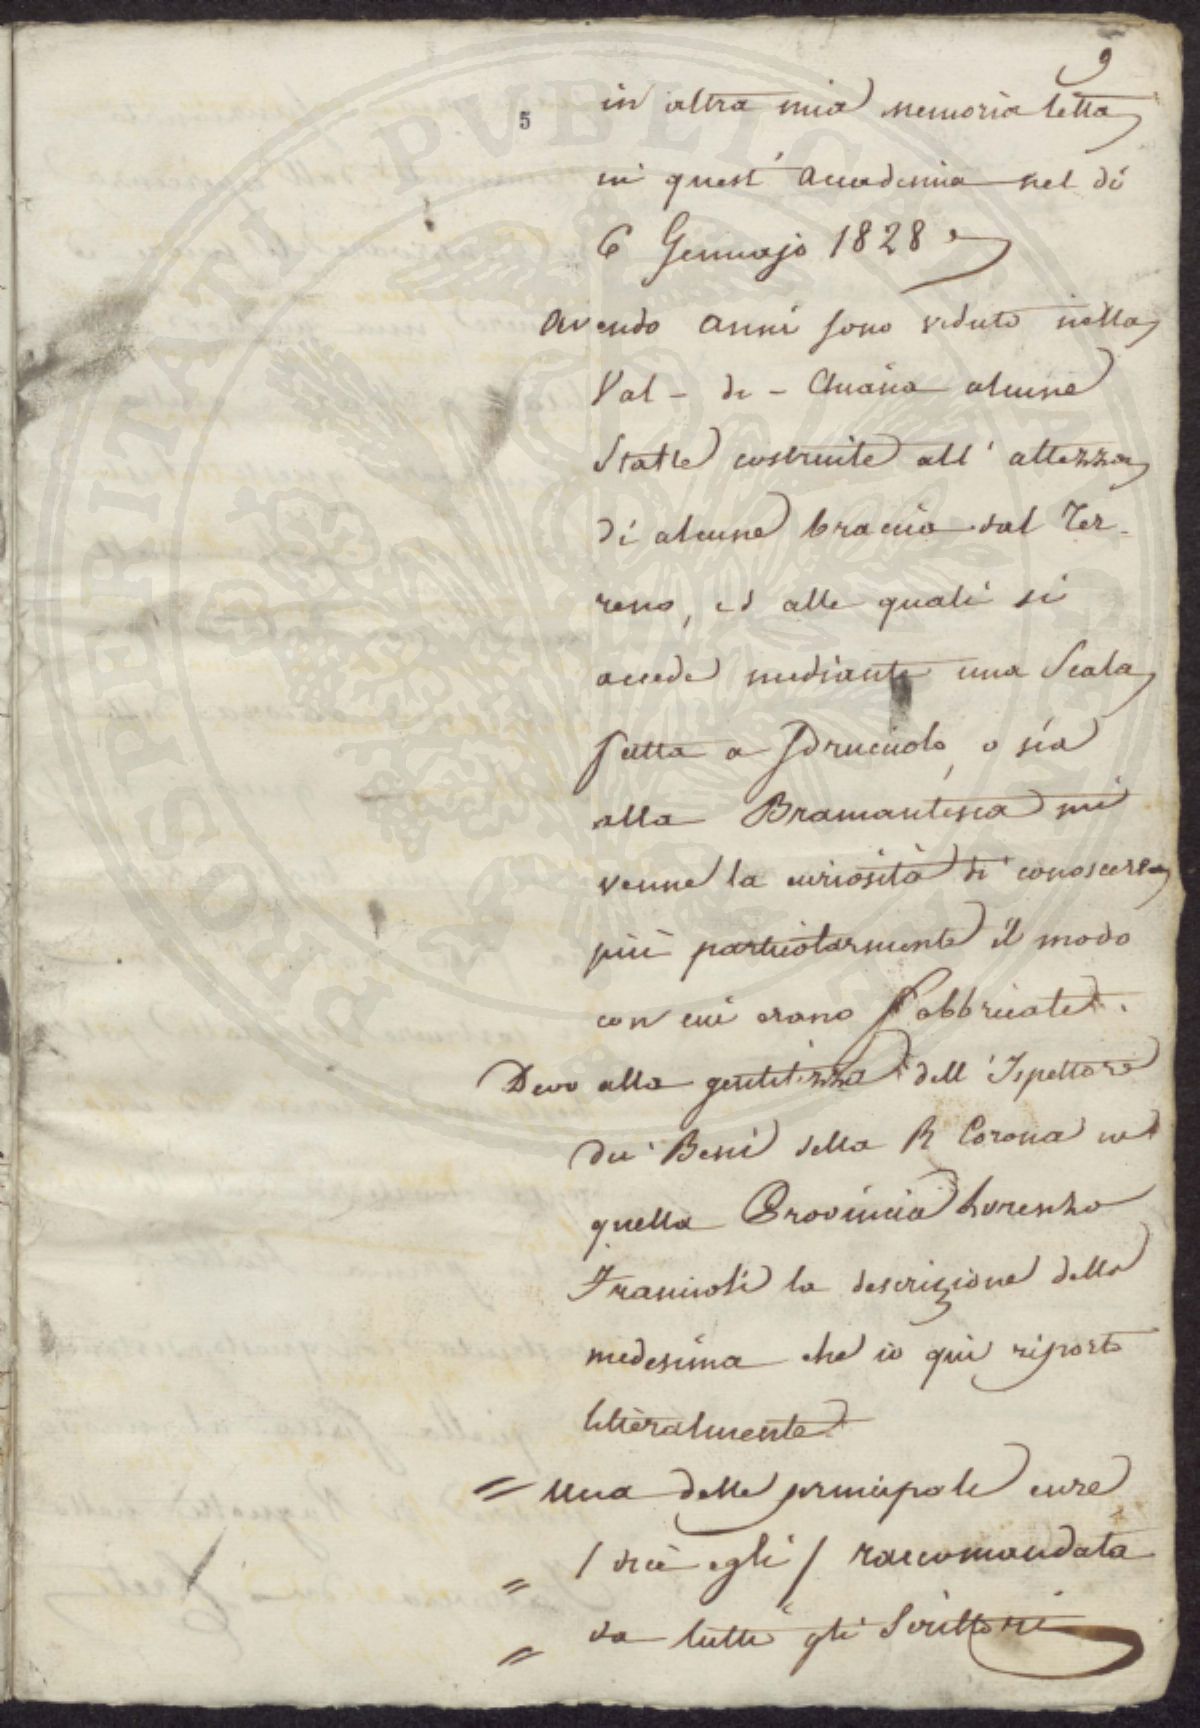 9
5
in altra mia memoria letta
in quest' Accademia nel dì
6 Gennajo 1828
Avendo anni sono veduto nella
Val - di - Chiana alcune
Stalle costruite all' altezza
di alcune braccia dal Ter-
reno, ed alle quali si
accede mediante una Scala
fatta a Sdrucciolo, o sia
alla Bramantesca mi
venne la curiosità di conoscere
più particolarmente il modo
con cui erano Fabbricate.
Devo alla gentilezza dell' Ispettore
dei Beni della R Corona in
quella Provincia Lorenzo
la descrizione delle
medesima che io qui riporto
litteralmente.
= Una delle principali cure
= / dice egli / raccomandata
= da tutti gli Scrittori
PROSPERITATI PVBLICAE